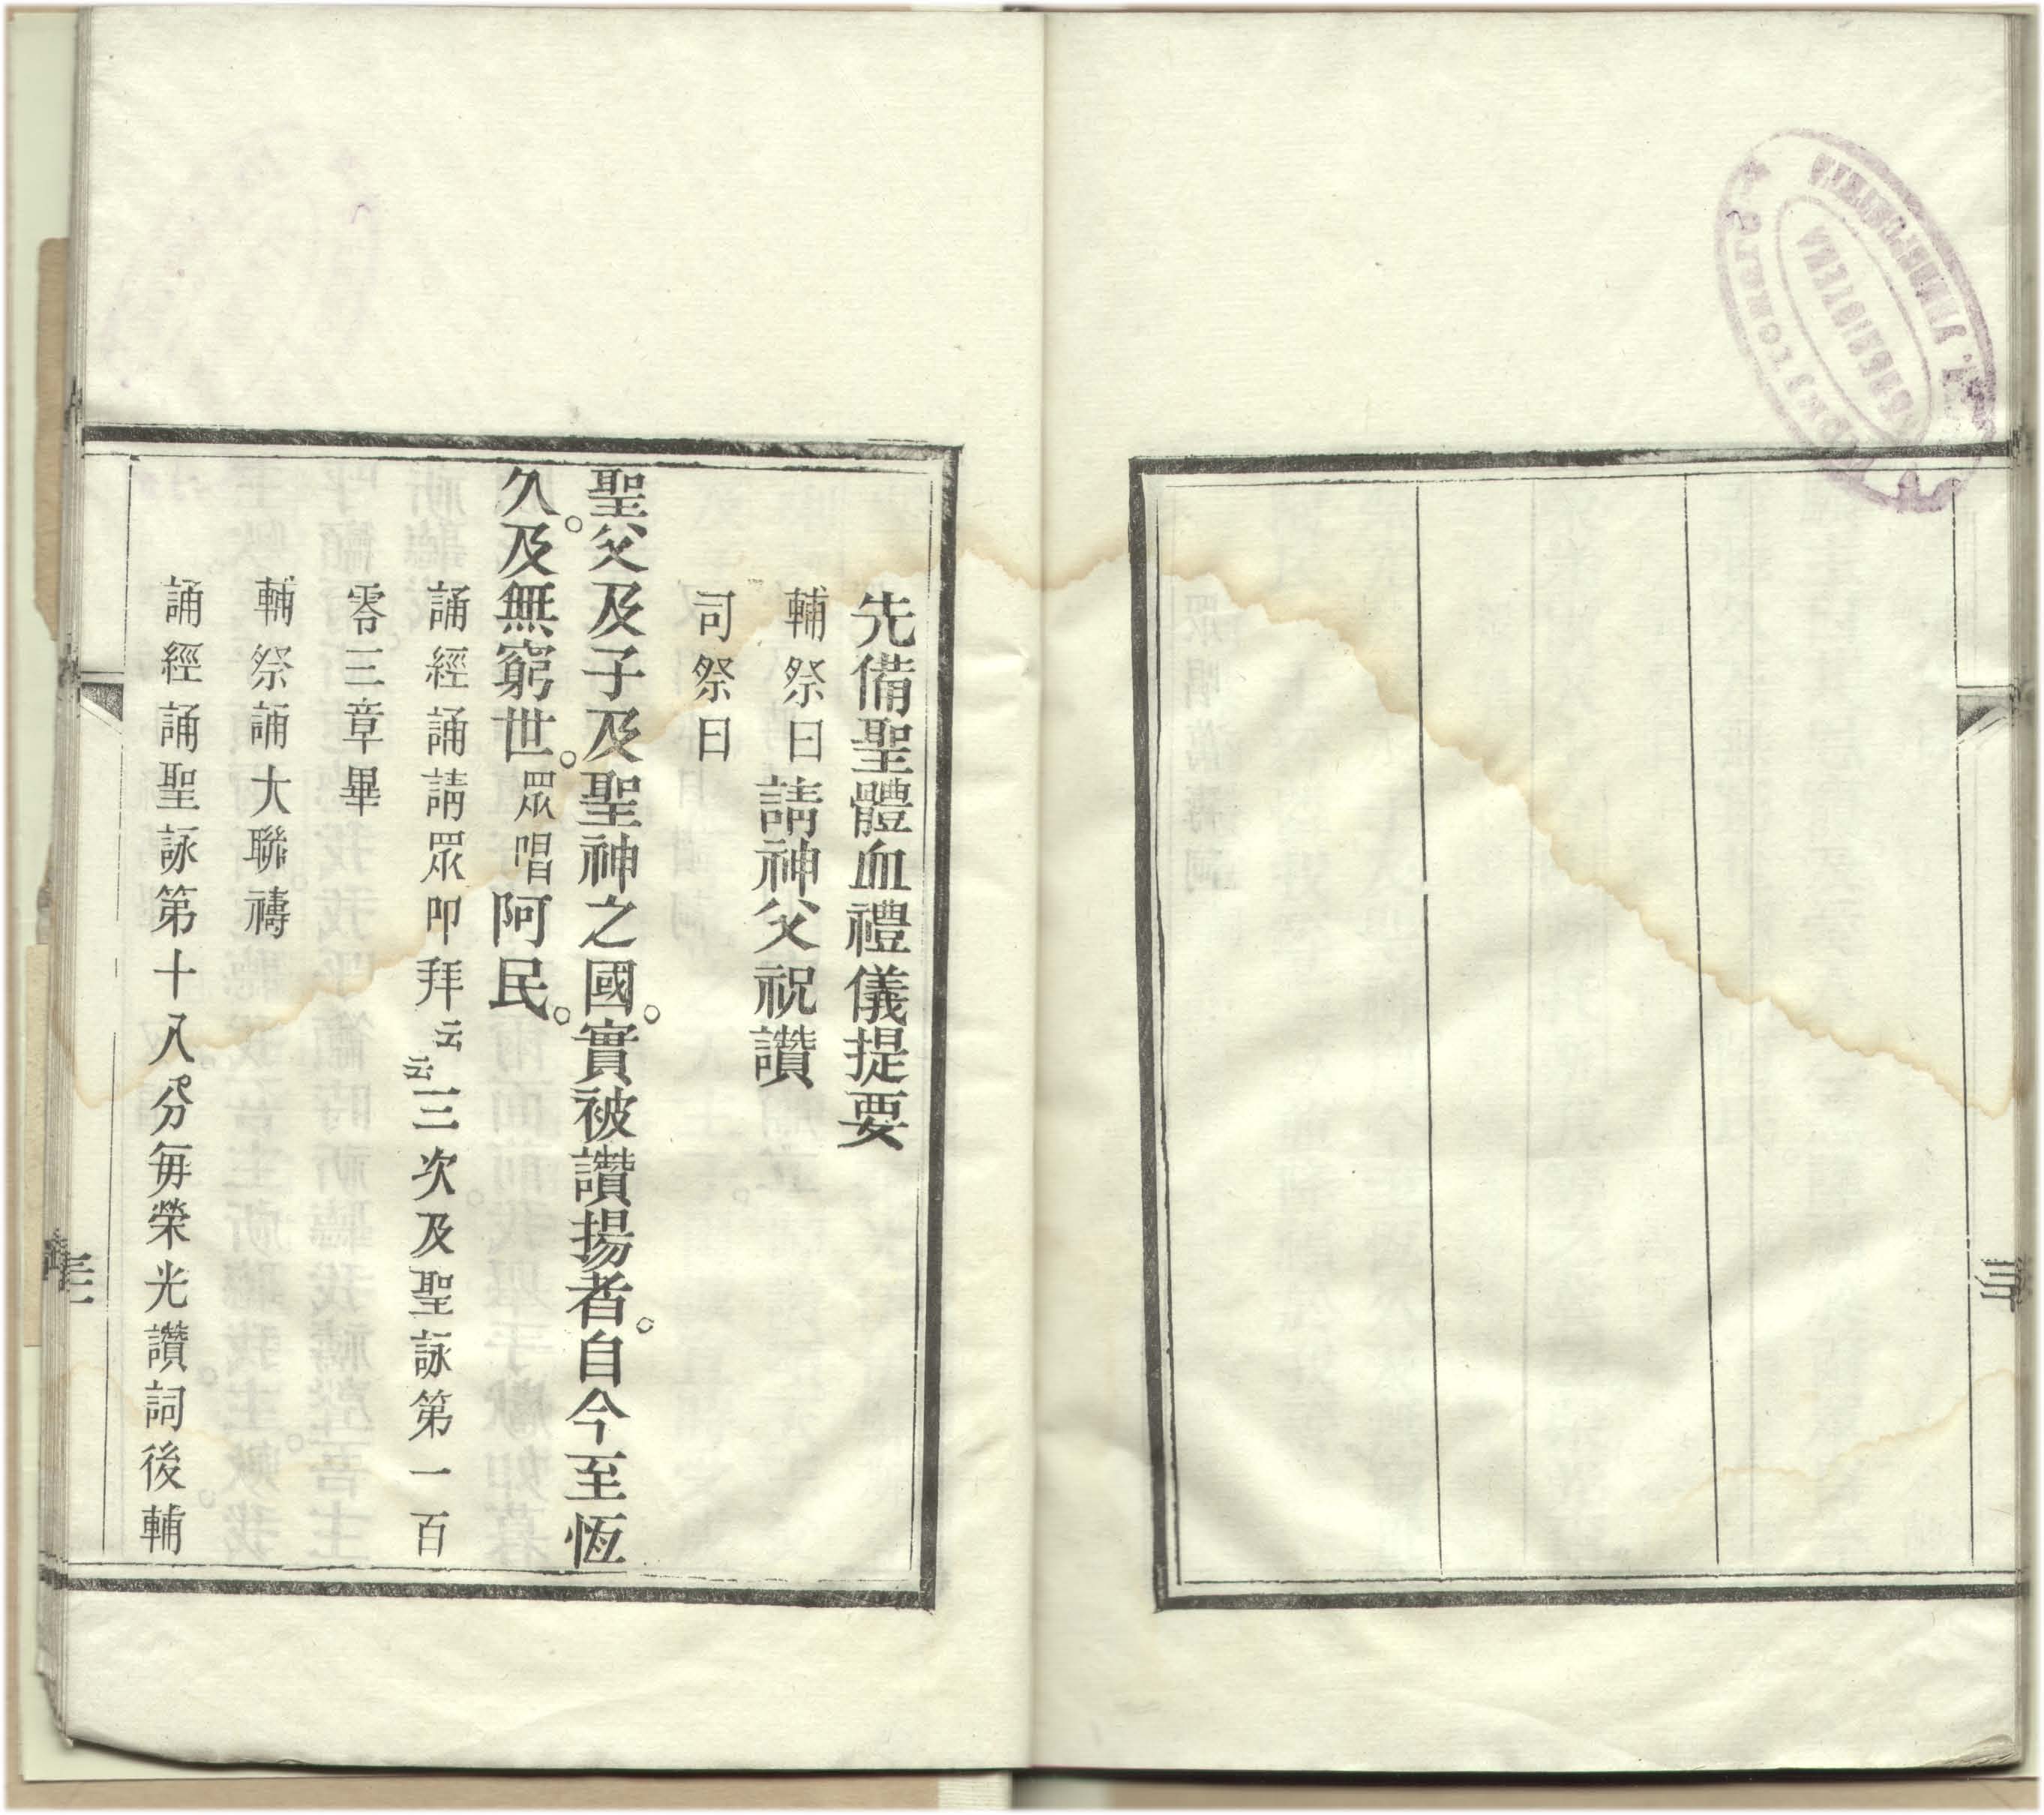 先備聖體血禮儀提要
輔祭曰請神父祝讚
司祭曰
聖父及子及聖神之國。實被讚揚者。自今至恆
久。及無窮世。眾唱阿民。
誦經誦請眾叩拜云云三次及聖詠第一百
零三章畢
輔祭誦大聯禱
誦經誦聖詠第十八分每榮光讚詞後輔